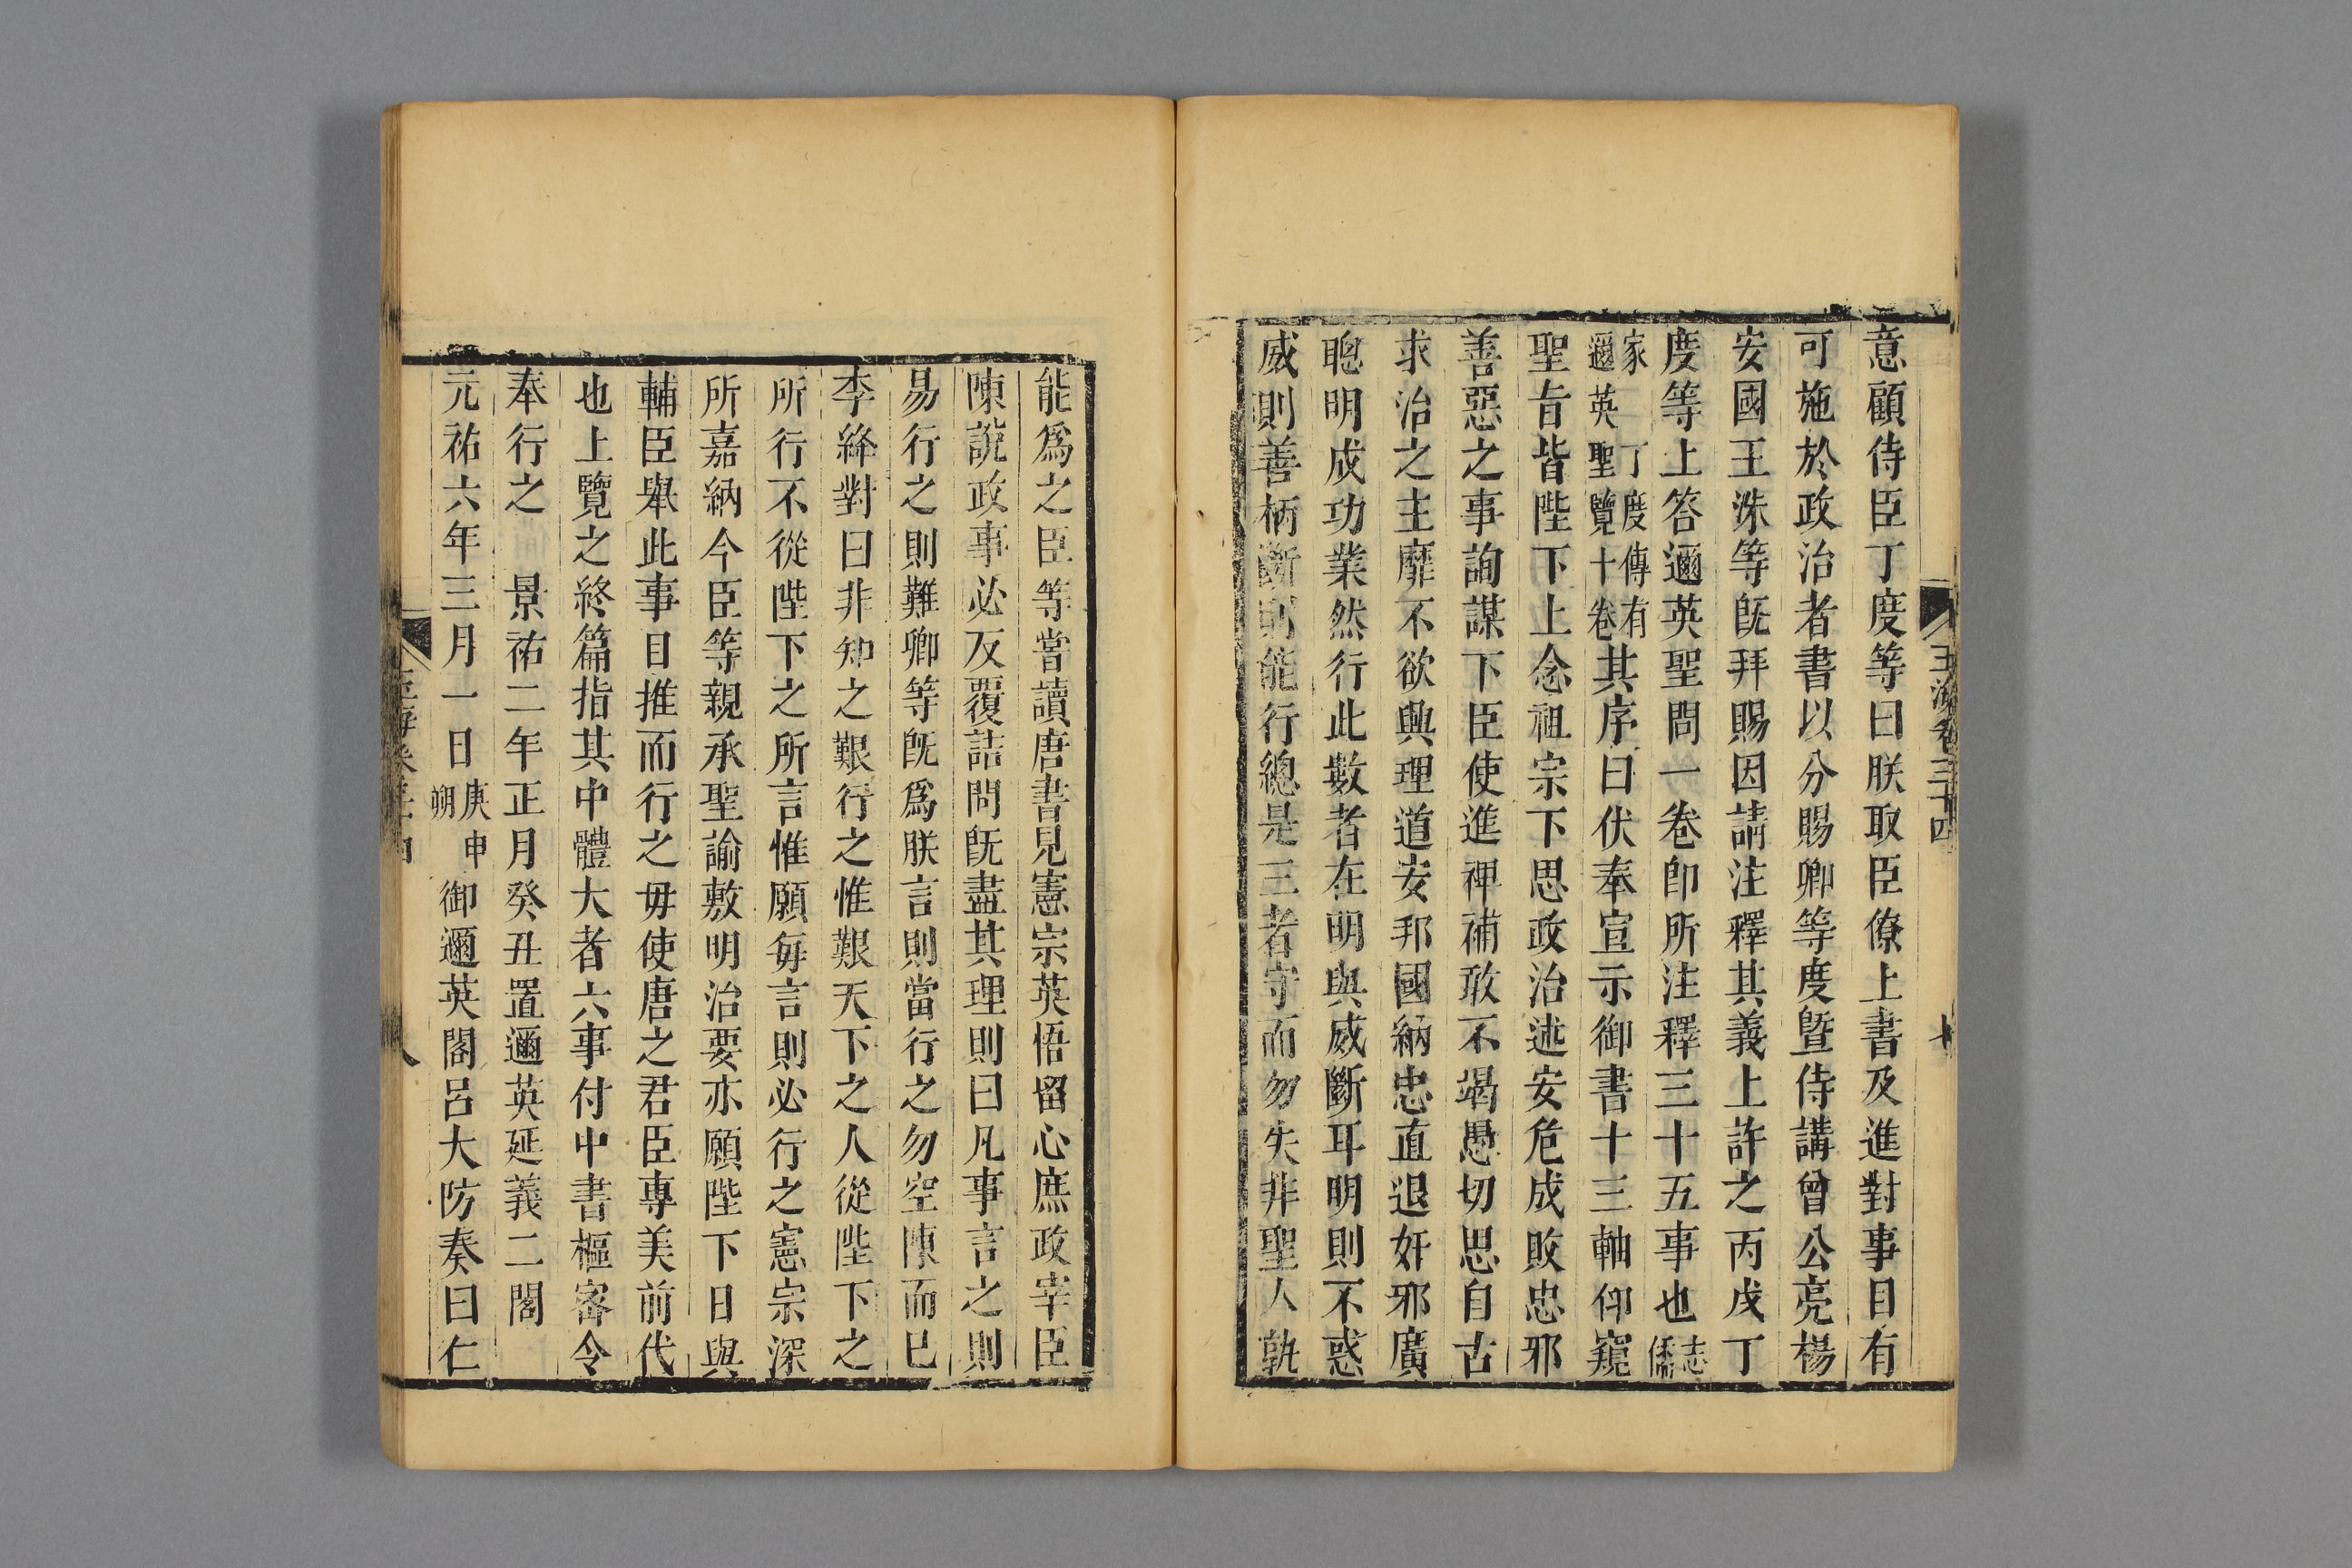 玉海卷三十四
七
意顧侍臣丁度等曰朕取臣僚上書及進對事目有
可施於政治者書以分賜卿等度曁侍講曾公亮楊
安國王洙等旣拜賜因請注釋其義上許之丙戌丁
度等上答邇英聖問一卷卽所注釋三十五事也志儒
家丁度傳有邇英聖覽十卷其序曰伏奉宣示御書十三軸仰窺
聖旨皆陛下上念祖宗下思政治述安危成敗忠邪
善惡之事詢謀下臣使進裨補敢不竭愚切思自古
求治之主靡不欲興理道安邦國納忠直退奸邪廣
聰明成功業然行此數者在明與威斷耳明則不惑
威則善柄斷則能行總是三者守而勿失非聖人孰
能爲之臣等嘗讀唐書見憲宗英悟留心庶政宰臣
陳說政事必反覆詰問旣盡其理則曰凡事言之則
易行之則難卿等旣爲朕言則當行之勿空陳而已
李絳對曰非知之艱行之惟艱天下之人從陛下之
所行不從陛下之所言惟願每言則必行之憲宗深
所嘉納今臣等親承聖諭敷明治要亦願陛下日與
輔臣舉此事目推而行之毋使唐之君臣專美前代
也上覽之終篇指其中體大者六事付中書樞密令
奉行之　景祐二年正月癸丑置邇英延義二閣
元祐六年三月一日庚申朔御邇英閣呂大防奏曰仁
八